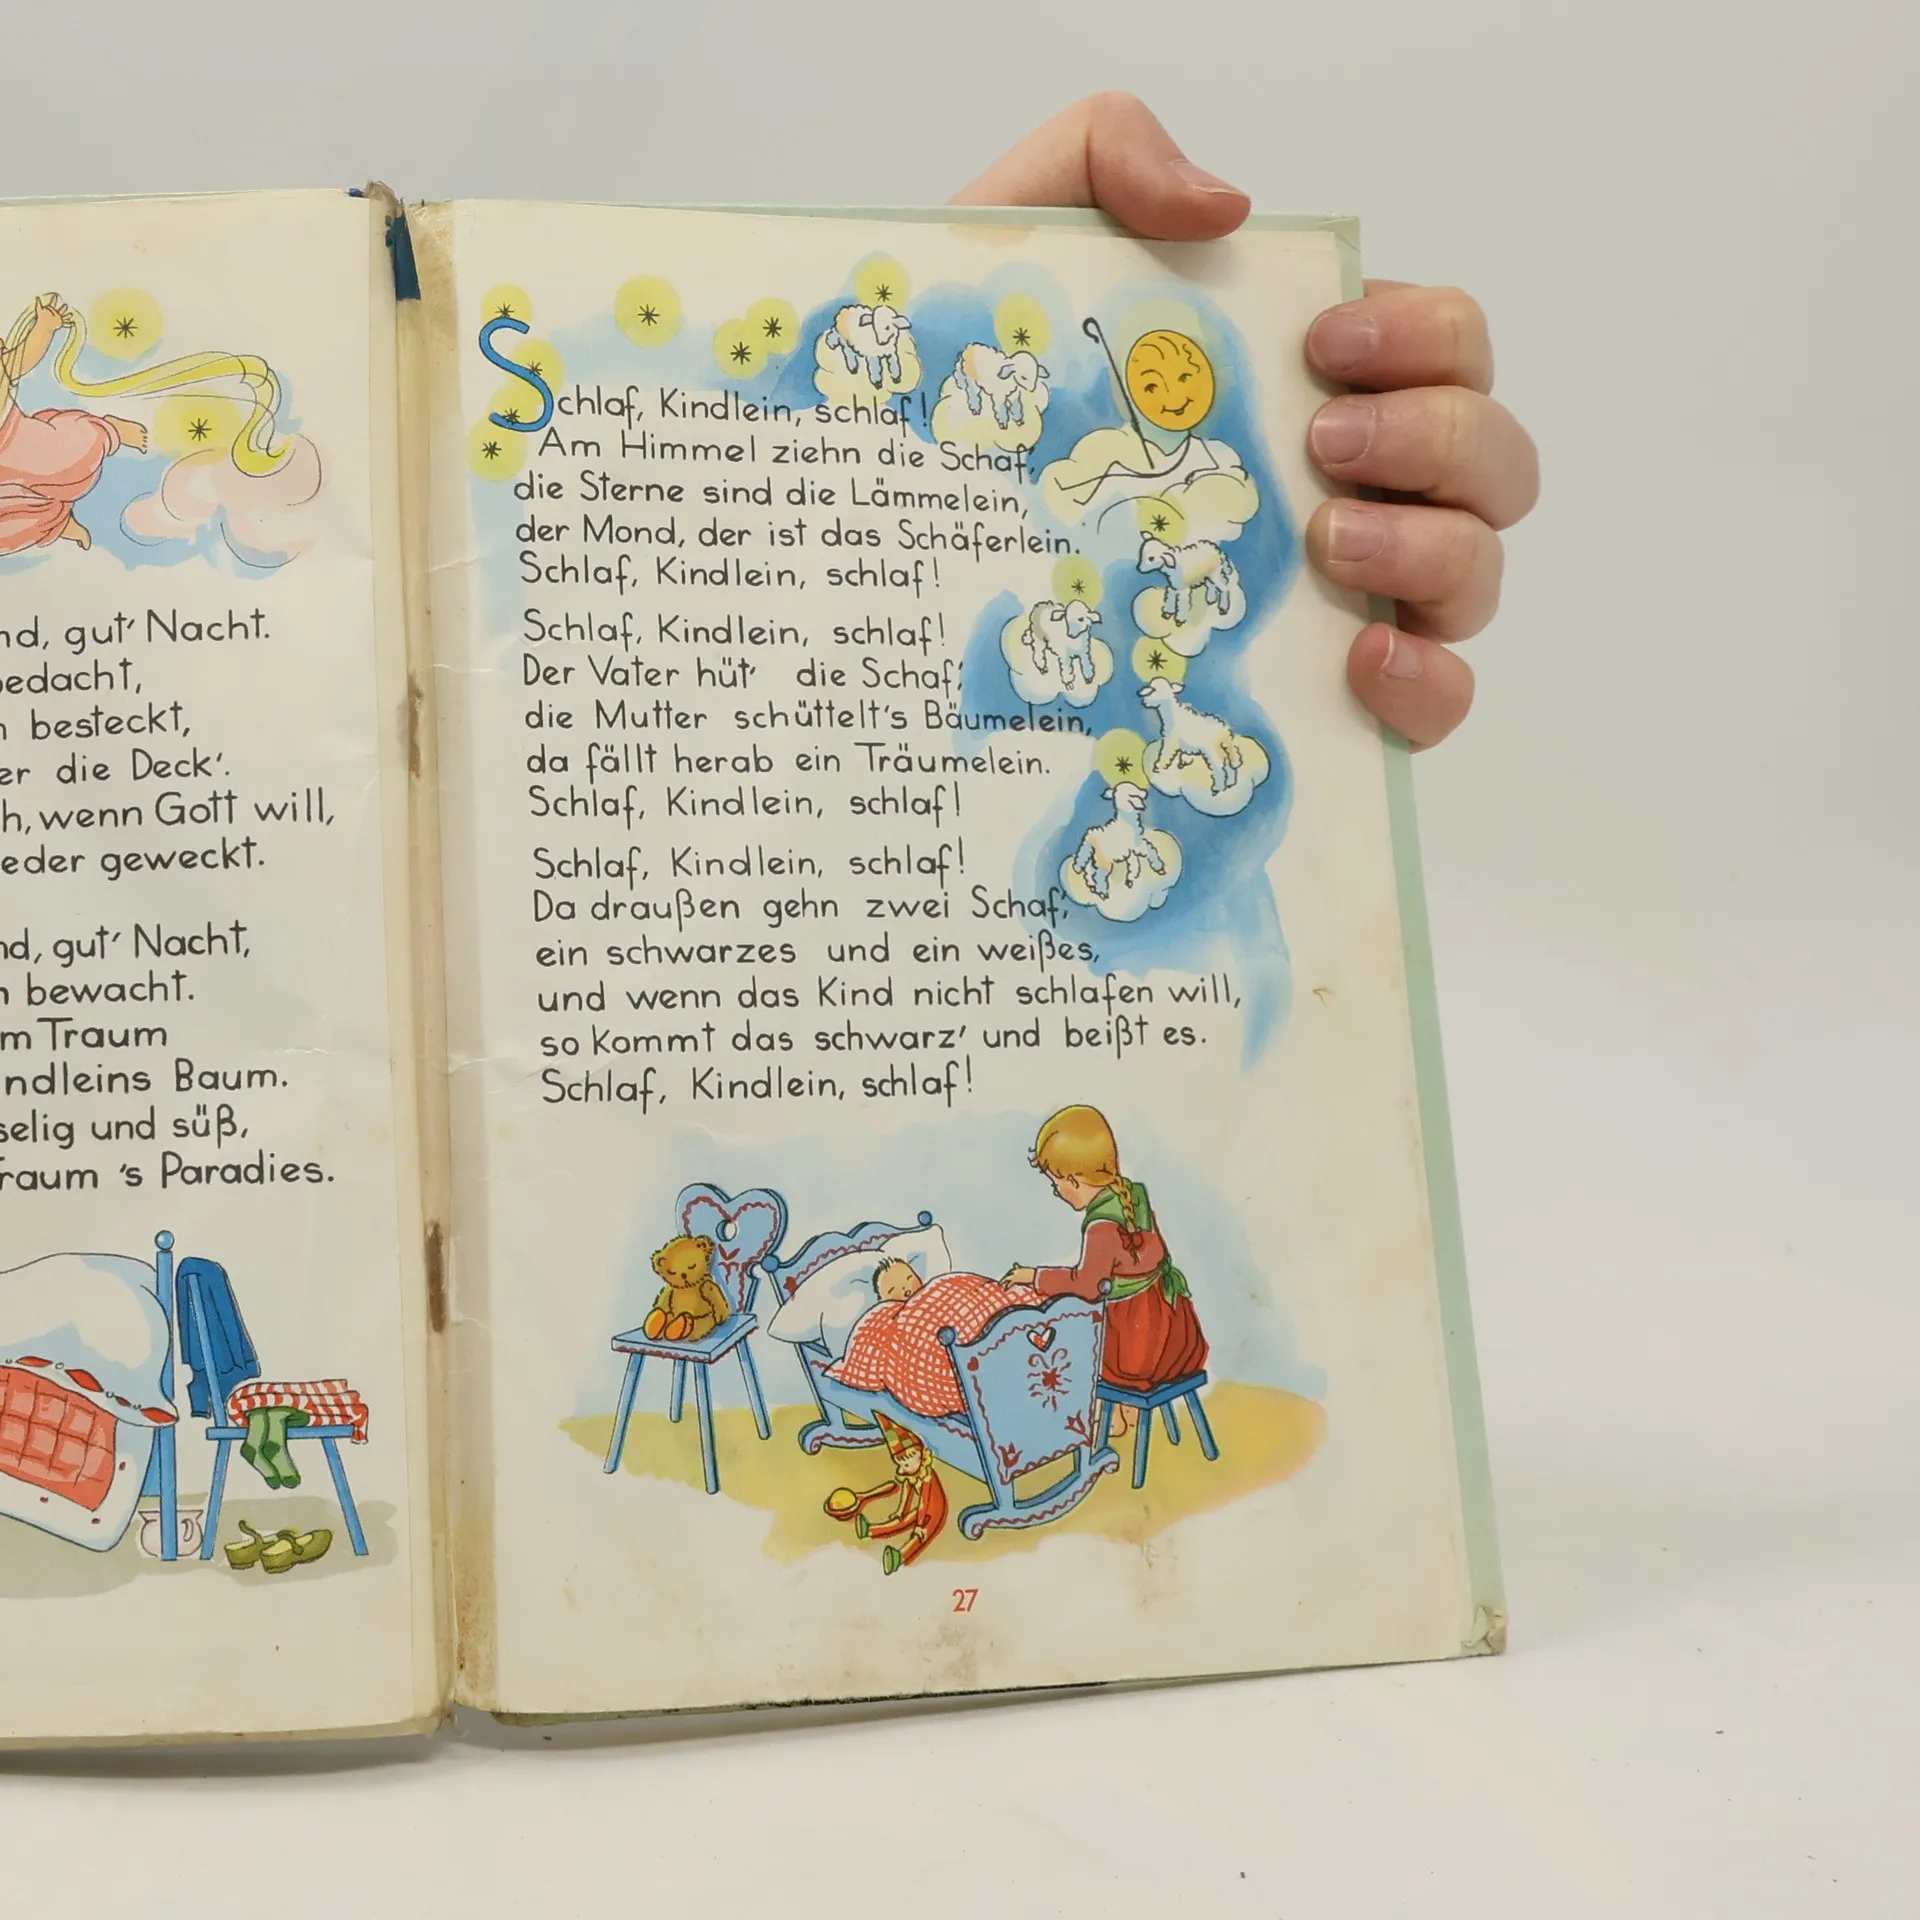 nd, gut' Nacht.
bedacht,
besteckt,
er die Deck'.
h, wenn Gott will,
eder geweckt.
nd, gut' Nacht,
bewacht.
m Traum
ndleins Baum.
selig und süß,
raum 's Paradies.
Schlaf, Kindlein, schlaf!
Am Himmel ziehn die Schaf,
die Sterne sind die Lämmelein,
der Mond, der ist das Schäferlein.
Schlaf, Kindlein, schlaf!
Schlaf, Kindlein, schlaf!
Der Vater hüt' die Schaf,
die Mutter schüttelt's Bäumelein,
da fällt herab ein Träumelein.
Schlaf, Kindlein, schlaf!
Schlaf, Kindlein, schlaf!
Da draußen gehn zwei Schaf,
ein schwarzes und ein weißes,
und wenn das Kind nicht schlafen will,
so kommt das schwarz' und beißt es.
Schlaf, Kindlein, schlaf!
27